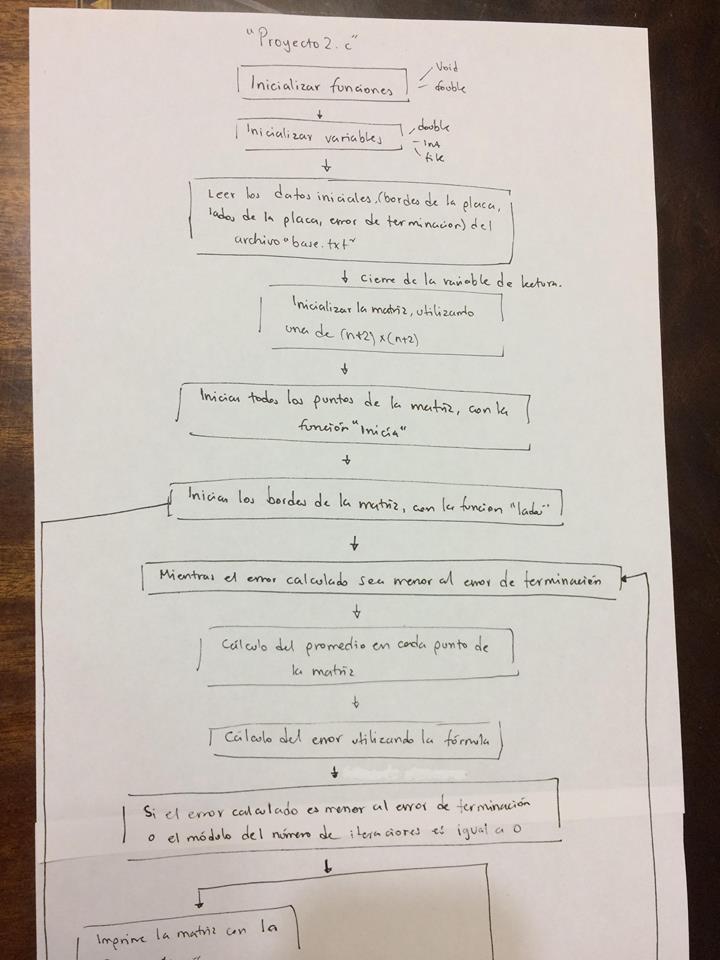 "Proyecto 2.c"
Inicializar funciones
Void
double
Inicializar variables
double
Int
file
Leer los datos iniciales, (bordes de la placa,
lados de la placa, error de terminación) del
archivo "base.txt"
cierre de la variable de lectura.
Inicializar la matriz, utilizando
una de (n+2)x(n+2)
Iniciar todos los puntos de la matriz, con la
función "Inicia"
Iniciar los bordes de la matriz, con la función "lado"
Mientras el error calculado sea menor al error de terminación
Cálculo del promedio en cada punto de
la matriz
Cálculo del error utilizando la fórmula
Si el error calculado es menor al error de terminación
o el módulo del número de iteraciones es igual a 0
Imprime la matriz con la